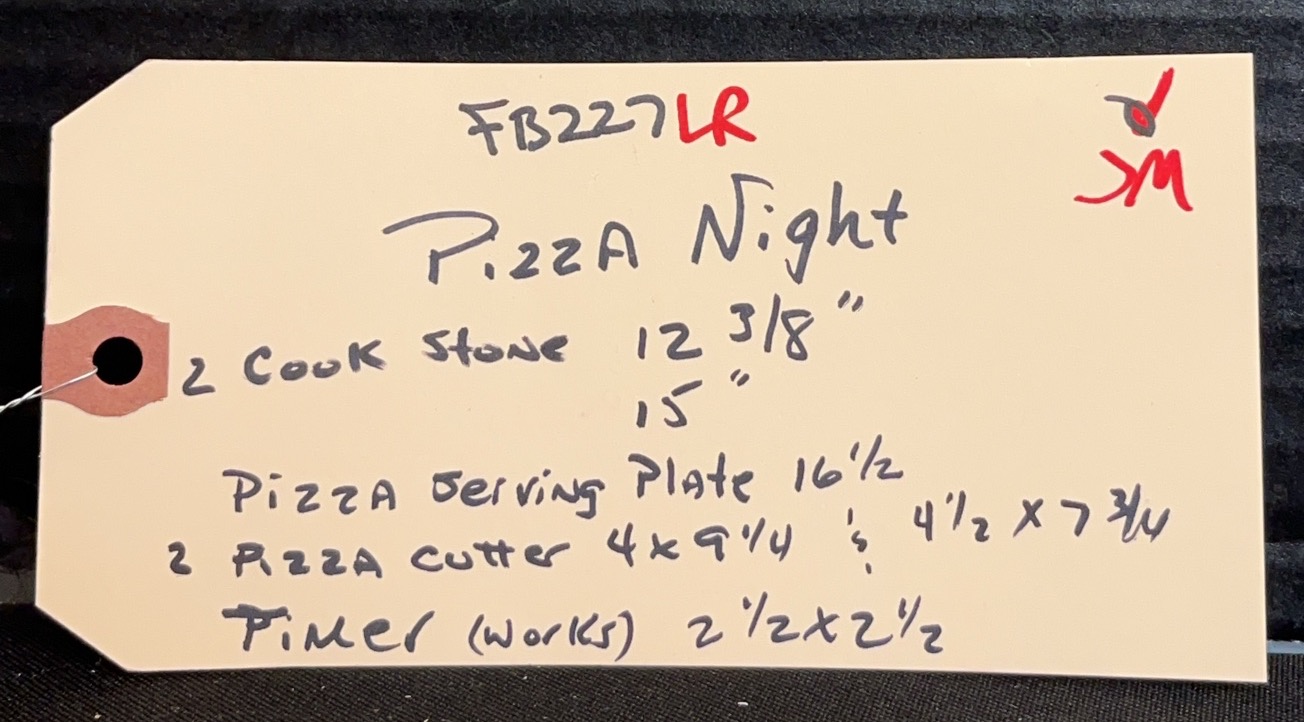 FB227LR
JM
PizzA Night
2 Cook Stone 12 3/8"
15"
PizzA Serving Plate 16 1/2
2 PizzA Cutter 4 x 9 1/4 & 4 1/2 x 7 3/4
Timer (works) 2 1/2 x 2 1/2